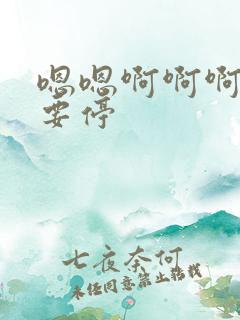 嗯嗯啊啊啊
要停
七夜奈何
未经同意禁止转载